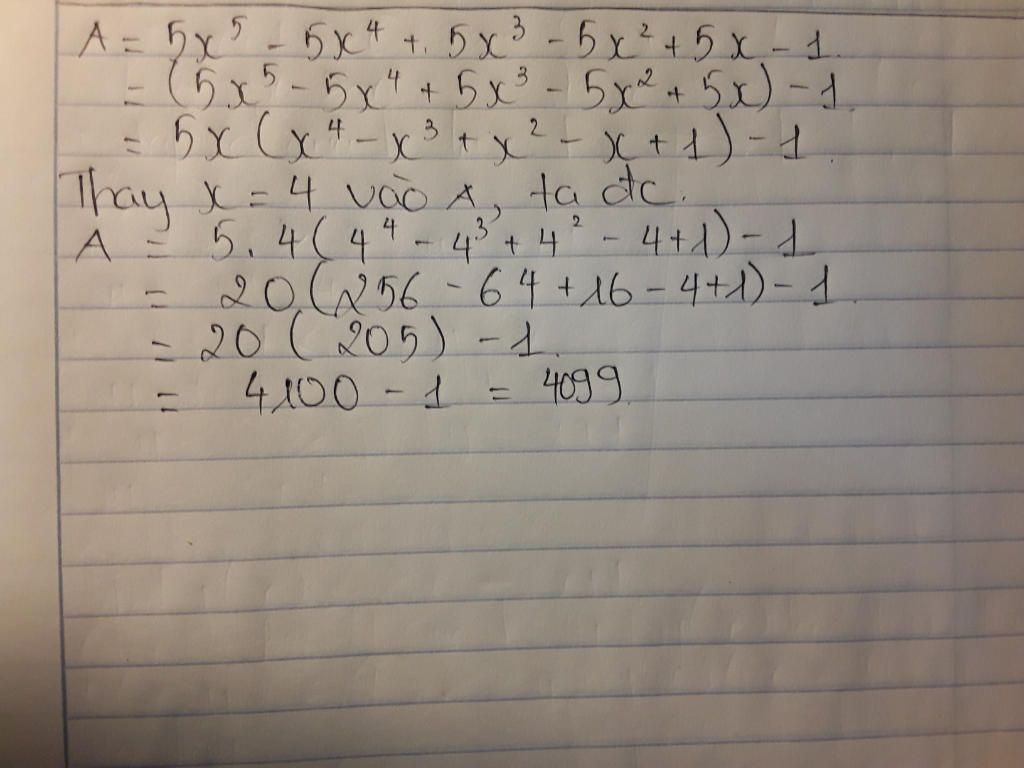 A = 5x⁵ - 5x⁴ + 5x³ - 5x² + 5x - 1.
= (5x⁵ - 5x⁴ + 5x³ - 5x² + 5x) - 1.
= 5x(x⁴ - x³ + x² - x + 1) - 1.
Thay x = 4 vào A, ta đc.
A = 5.4(4⁴ - 4³ + 4² - 4 + 1) - 1
= 20(256 - 64 + 16 - 4 + 1) - 1.
= 20 (205) - 1.
= 4100 - 1 = 4099.